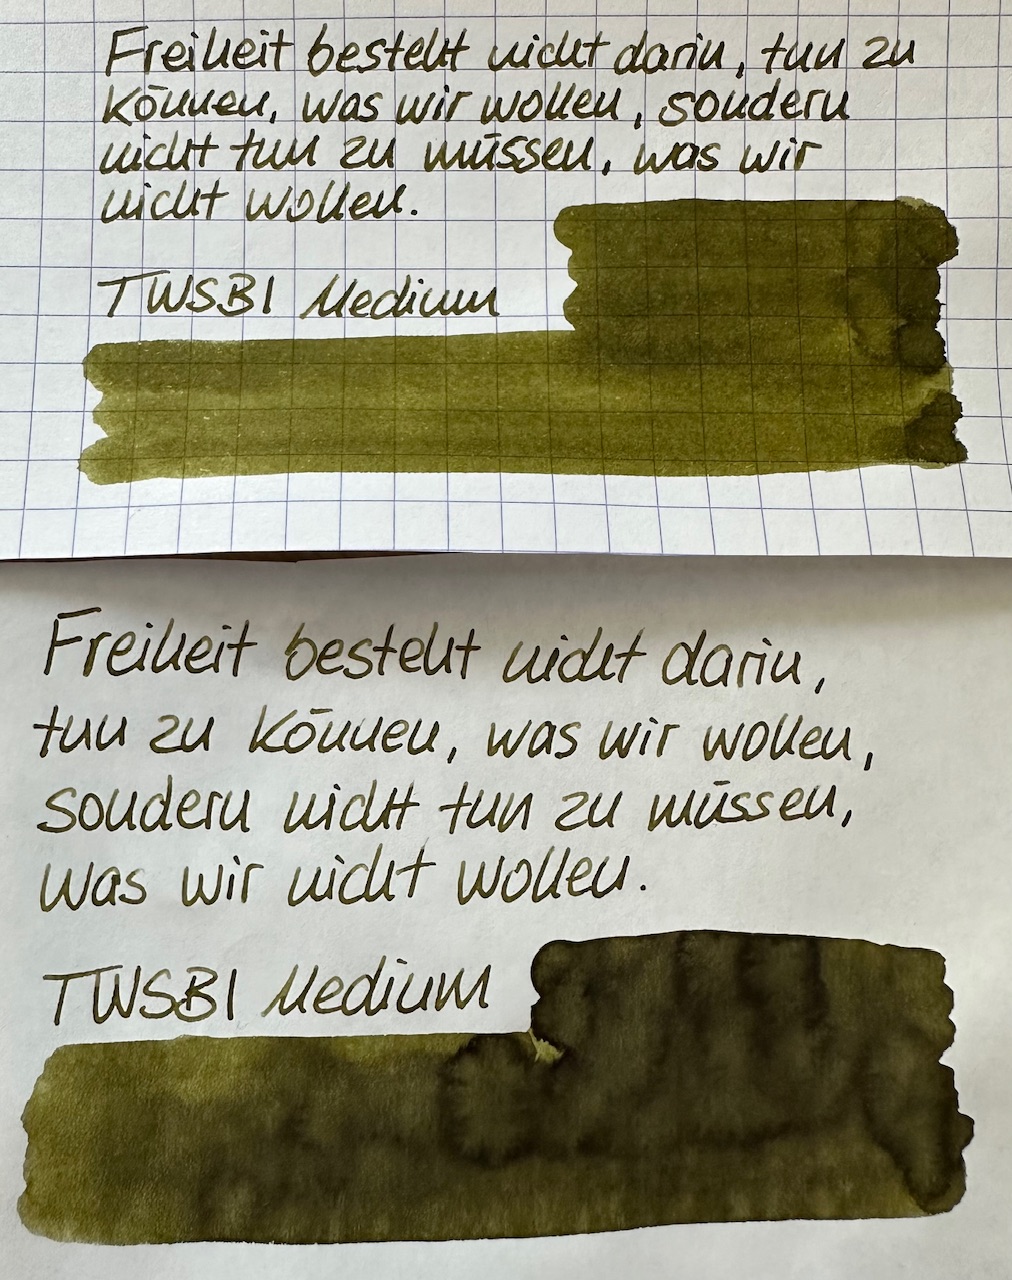 Freiheit besteht nicht darin, tun zu
können, was wir wollen, sondern
nicht tun zu müssen, was wir
nicht wollen.
TWSBI Medium
Freiheit besteht nicht darin,
tun zu können, was wir wollen,
sondern nicht tun zu müssen,
was wir nicht wollen.
TWSBI Medium